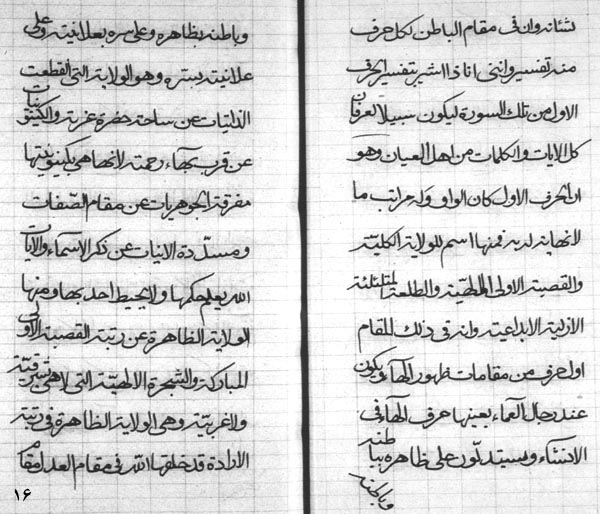 نشائه وان فى مقام الباطن لكل حرف
منه تفسير وانى انا ذا اشير بتفسير الحرف
الاول من تلك السورة ليكون سبيلا لعرفان
كل الايات والكلمات من اهل العيان وهو
ان الحرف الاول كان الواو وله مراتب ما
لانهاية لديه فمنها اسم للولاية الكلية
والقصبة الاولى الالهية والطلعة المتلئلئة
الازلية الابداعية وانه فى ذلك المقام
اول حرف من مقامات ظهور الهاء ويكون
عند رجال العماء بعينها حرف الهاء فى
الانشاء ويستدلون على ظاهره بباطنه
وباطنه
وباطنه بظاهره وعلى سره بعلانيته وعلى
علانيته بسره وهو الولاية التى انقطعت
الذاتيات عن ساحة حضرة عزته والكينونيات
عن قرب بهاء رحمته لانها هى بكينونيتها
مفرقة الجوهريات عن مقام الصفات
ومسددة الانيات عن ذكر الاسماء والايات
الله يعلم حكمها ولا يحيط احد بها ومنها
الولاية الظاهرة عن رتبة القصبة الاولى
المباركة والشجرة الالهية التى لا هى شرقية
ولا غربية وهى الولاية الظاهرة فى رتبة
الارادة قد خلقها الله فى مقام العدل مقام
۱۶